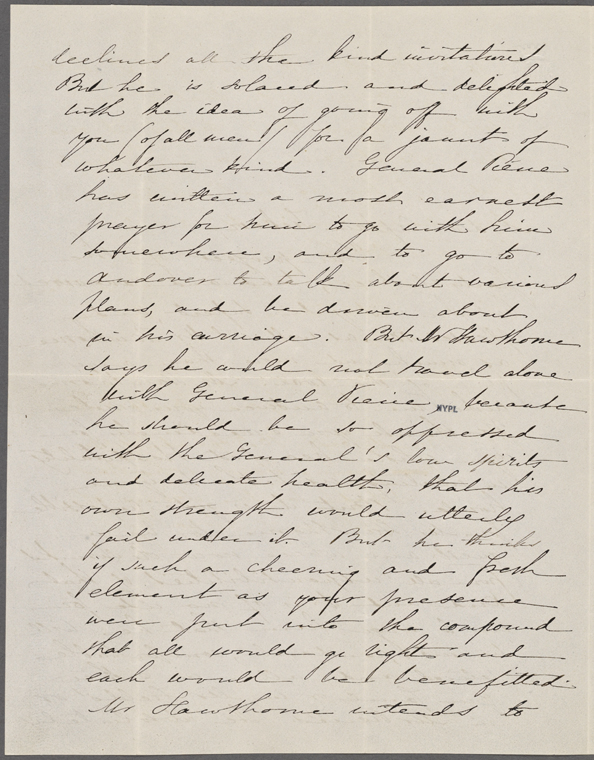 declines all the kind invitations
But he is solaced and delighted
with the idea of going off with
you (of all men!) for a jaunt of
whatever kind. General Pierce
has written a most earnest
prayer for him to go with him
somewhere, and to go to
Andover to talk about various
plans, and be driven about
in his carriage. But Mr Hawthorne
says he could not travel alone
with General Pierce, because
NYPL
he should be so oppressed
with the General's low spirits
and delicate health, that his
own strength would utterly
fail under it. But he thinks
if such a cheering and fresh
element as your presence
were put into the compound
that all would go right and
each would be benefitted.
Mr Hawthorne intends to